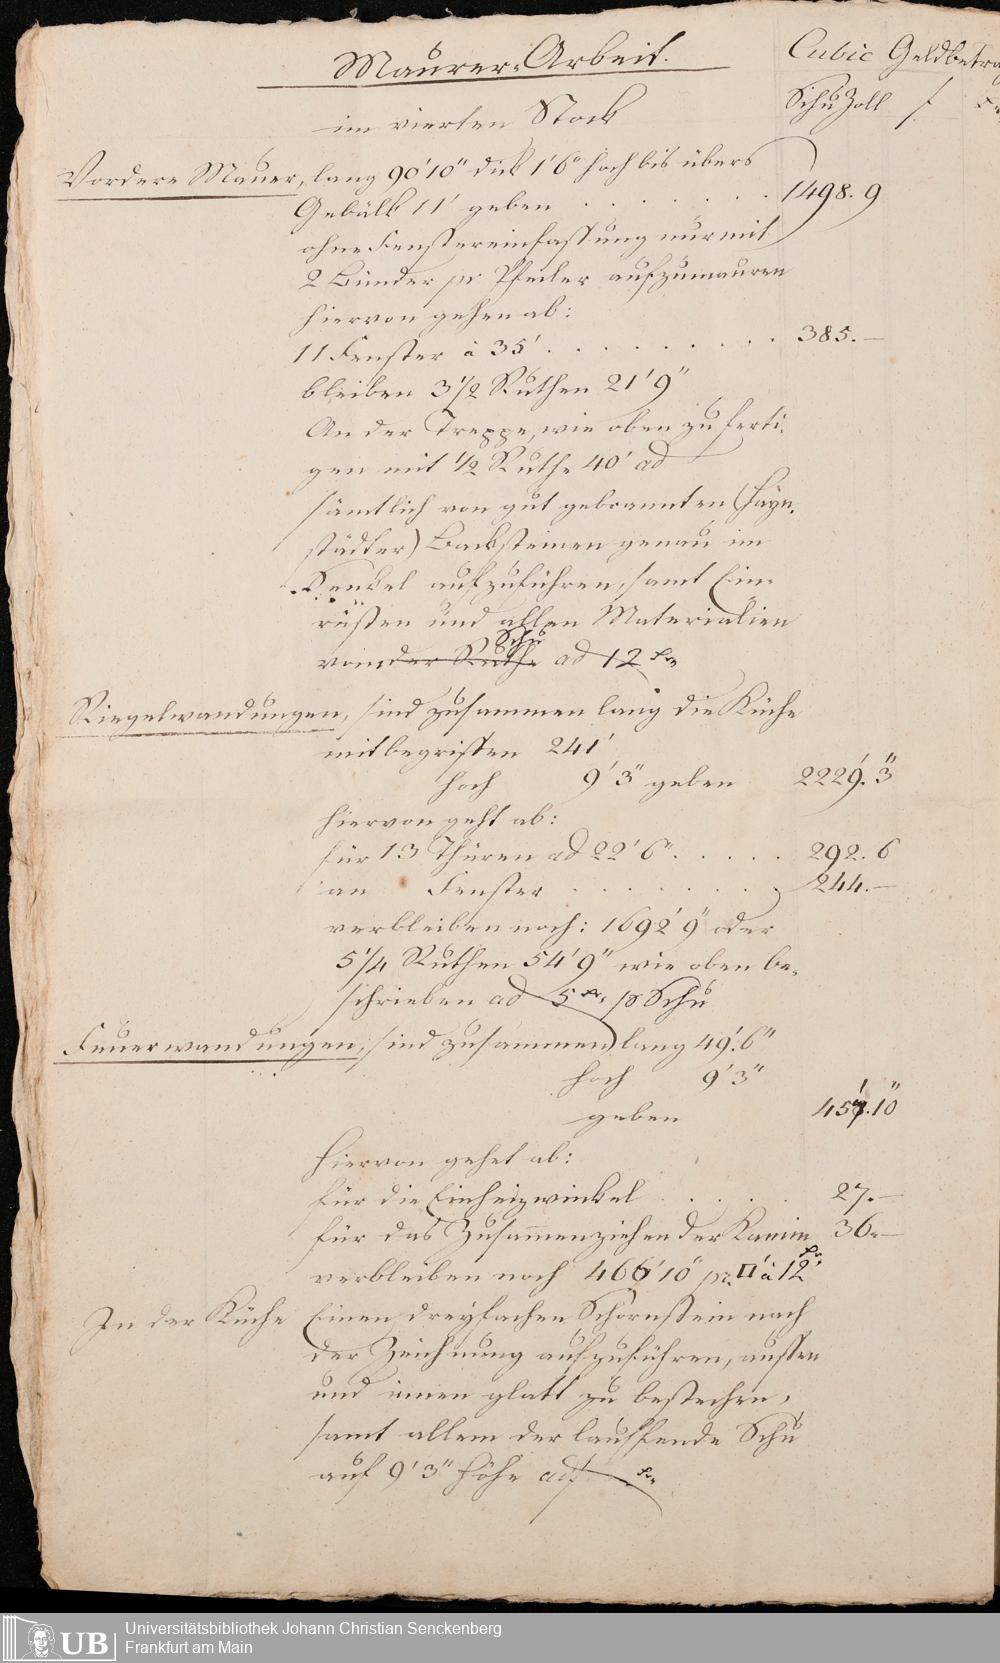 Maurer-Arbeit.
Cubic Geldbetra
im vierten Stock
Schu Zoll f
Vordere Mauer, lang 90' 10" dick 1' 6" hoch bis übers
Gebälk 11' geben . . . . . . . 1498. 9
ohne Fenstereinfassung nur mit
2 Bünder pr Pfeiler aufzumauren
hiervon gehen ab:
11 Fenster à 35' . . . . . . . . . 385.—
bleiben 3 1/2 Ruthen 21' 9"
An der Treppe, wie oben zu ferti-
gen mit 1/2 Ruthe 40' ad
sämtlich von gut gebrannten (Hayn-
städter) Backsteinen genau im
Senkel aufzuführen, samt Ein-
rüsten und allen Materialien
Schu
von der Ruthe ad 12 Kr
Riegelwandungen, sind zusammen lang die Küche
mitbegriffen 241'
hoch 9' 3" geben 2229.' 3"
hiervon geht ab:
für 13 Thüren ad 22' 6" . . . . . 292. 6
an Fenster . . . . . . . 244.—
verbleiben noch: 1692' 9" oder
5 1/4 Ruthen 54' 9" wie oben be-
schrieben ad 5 Kr. pr Schu
Feuerwandungen, sind zusammen lang 49.' 6"
hoch 9' 3"
geben 457.' 10"
hiervon gehet ab:
für die Einheizwinkel . . . . . 27.—
für das Zusammenziehen der Kamin 36.—
verbleiben noch 466' 10" pr. □' à 12 Kr
In der Küche Einen dreyfachen Schornstein nach
der Zeichnung aufzuführen, aussen
und innen glatt zu bestechen,
samt allem der lauffende Schu
auf 9' 3" Höhe ad f — Kr
Universitätsbibliothek Johann Christian Senckenberg
Frankfurt am Main
UB